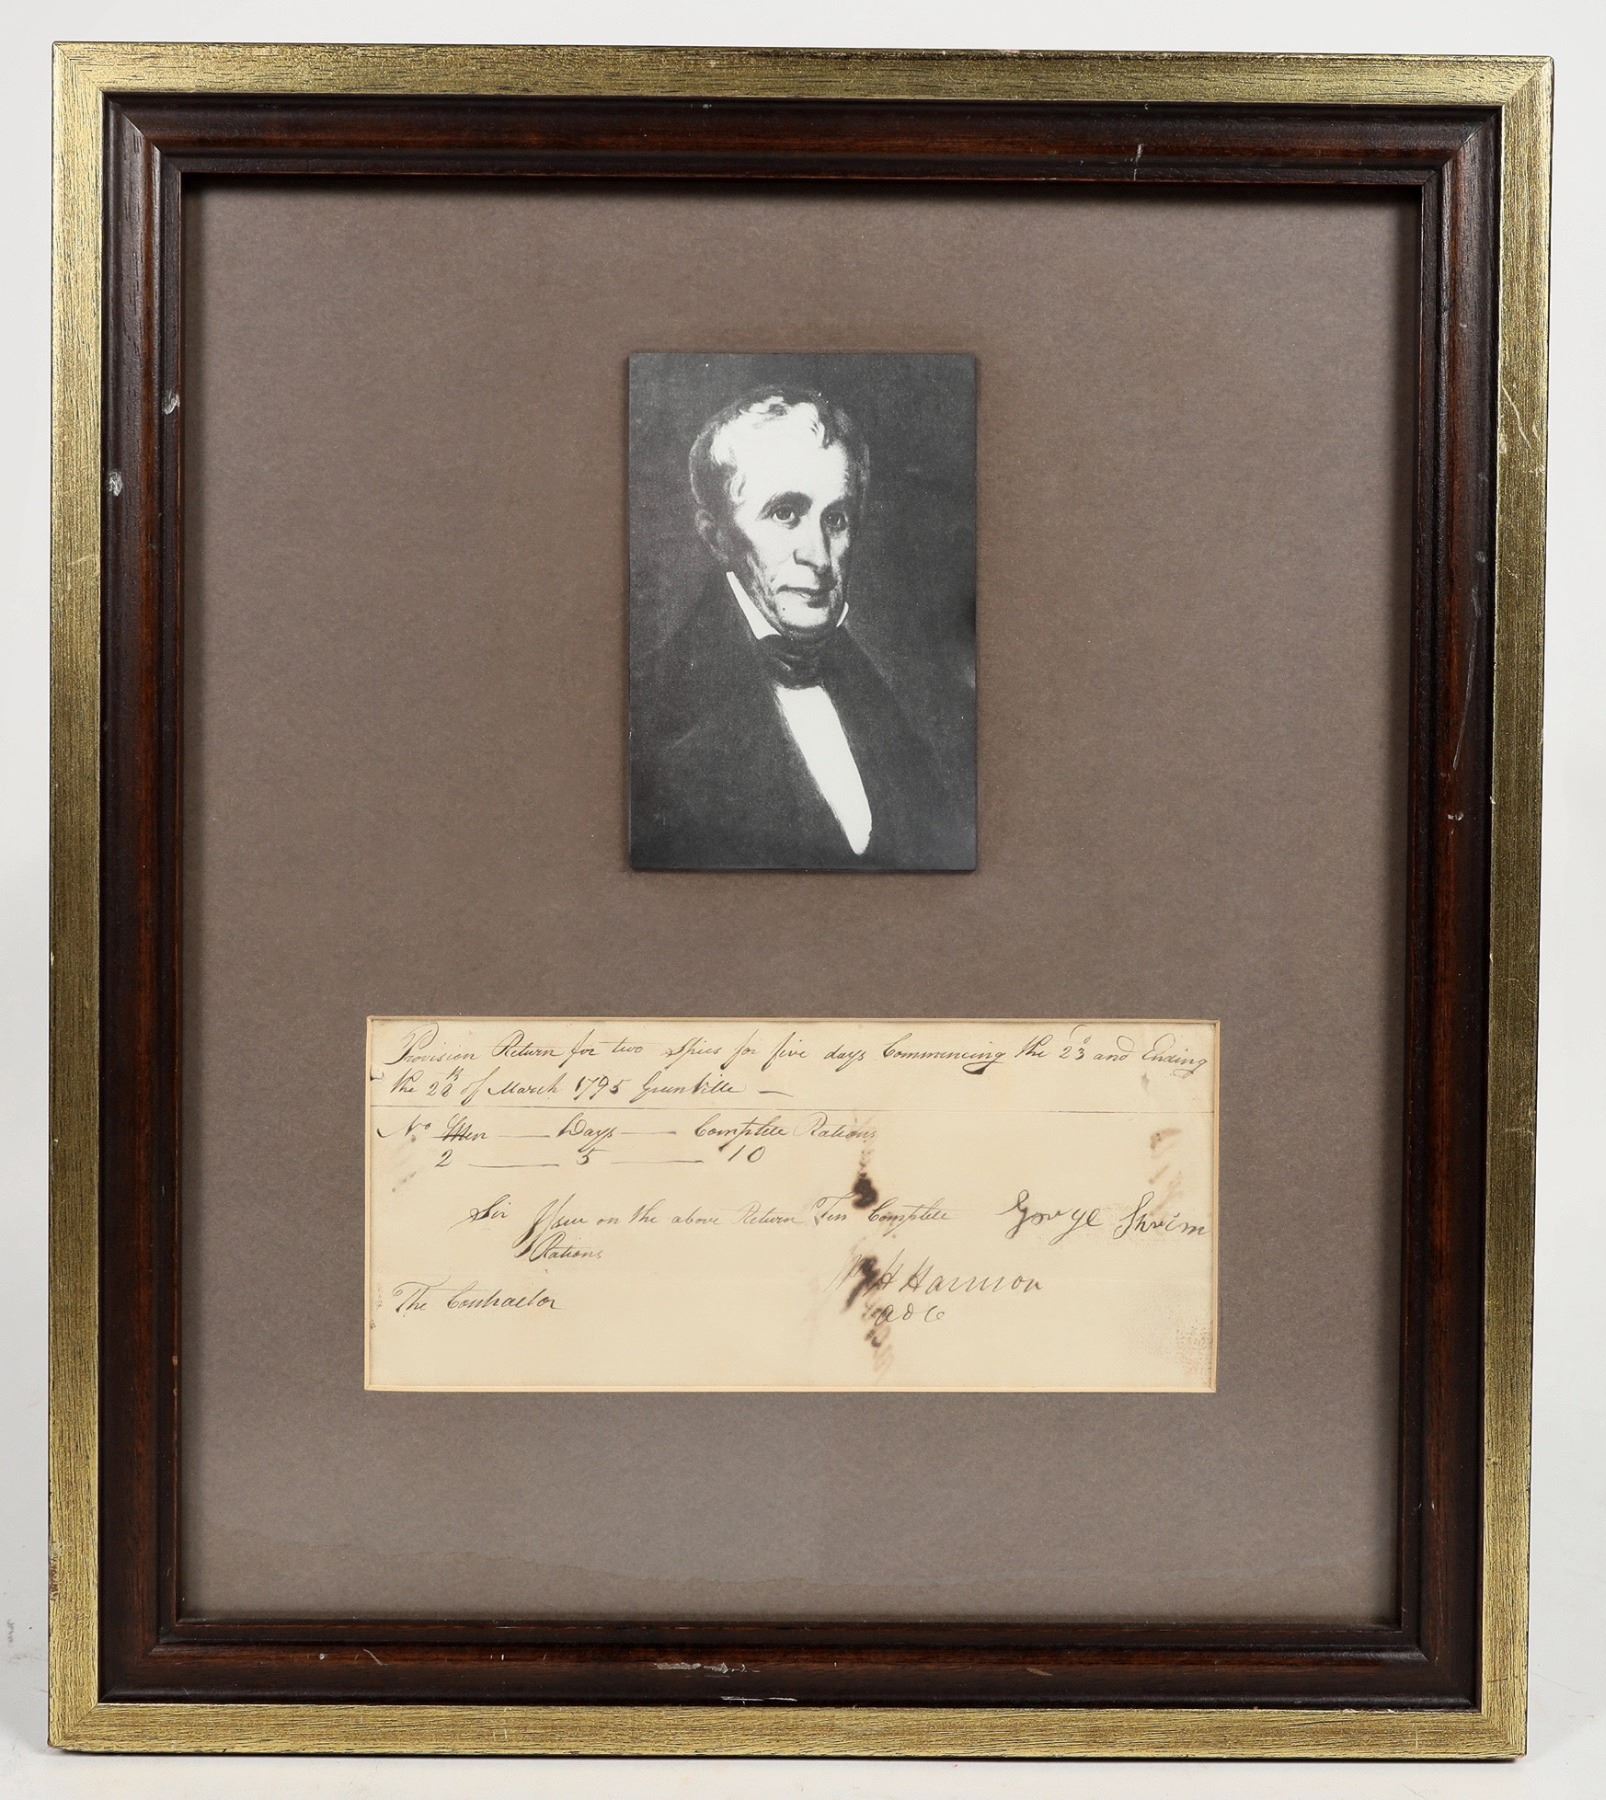 Provision Return for two Spies for five days Commencing the 23d and Ending
the 28th of March 1795 Greenville —
No Men — Days — Complete Rations
2 — 5 — 10
Sir Issue on the above Return Ten Complete
Rations
George Shrim
Wm H Harrison
The Contractor
a d c